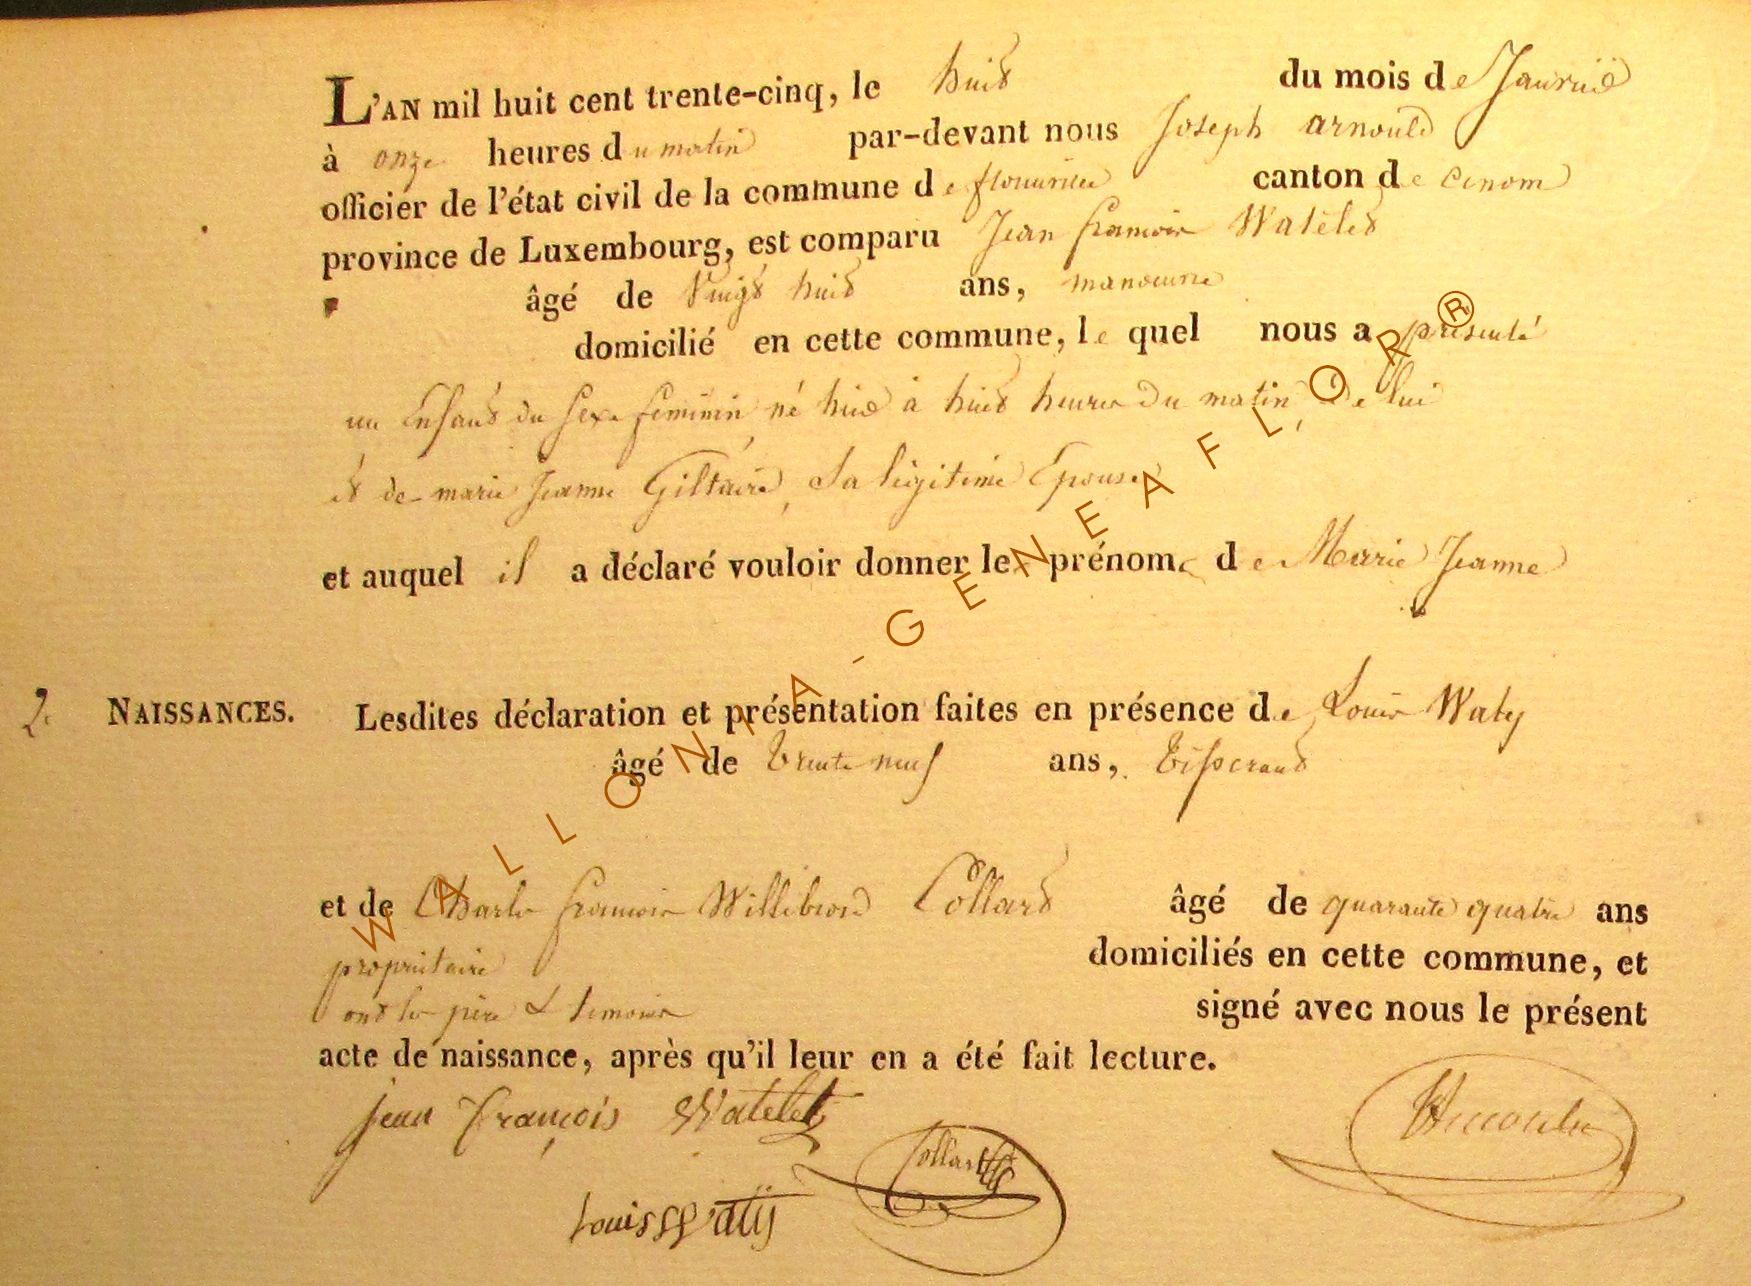 L'AN mil huit cent trente-cinq, le huit du mois de Janvier
à onze heures du matin par-devant nous Joseph arnould
officier de l'état civil de la commune de flouville canton de
province de Luxembourg, est comparu Jean francois Watelet
âgé de Vingt huit ans, manoeuvre
domicilié en cette commune, le quel nous a présenté
un Enfant du sexe feminin né huit à huit heures du matin, de lui
et de marie Jeanne Giltaire, sa légitime Epouse
et auquel il a déclaré vouloir donner les prénoms de Marie Jeanne
2. NAISSANCES. Lesdites déclaration et présentation faites en présence de Louis Waty
âgé de trente neuf ans, tisserand
et de Charles francois Willibrord Collard âgé de quarante quatre ans
propriétaire domiciliés en cette commune, et
ont les père & temoins signé avec nous le présent
acte de naissance, après qu'il leur en a été fait lecture.
jean François Watelet
Collard
Arnould
Louis Waty
WALLONIA-GENEAFLOR®